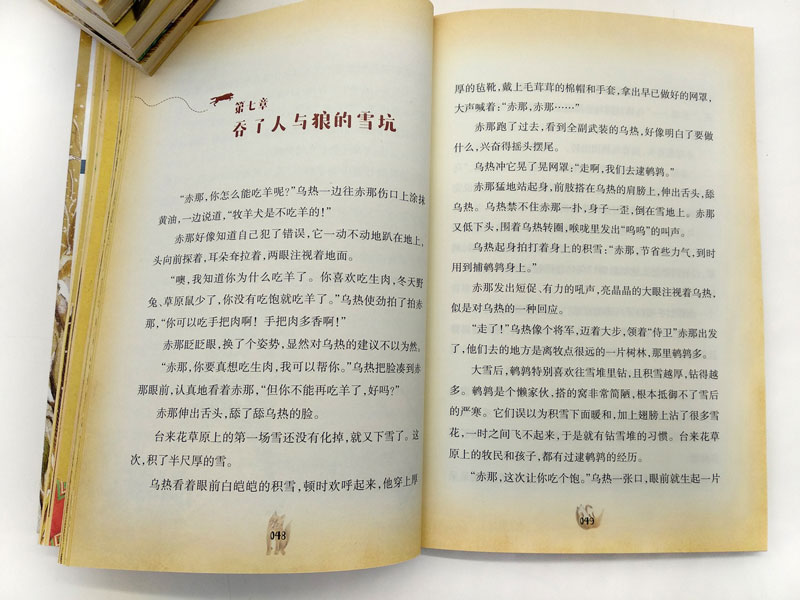 第七章
吞了人与狼的雪坑
“赤那，你怎么能吃羊呢?”乌热一边往赤那伤口上涂抹
黄油，一边说道，“牧羊犬是不吃羊的！”
赤那好像知道自己犯了错误，它一动不动地趴在地上，
头向前探着，耳朵耷拉着，两眼注视着地面。
“噢，我知道你为什么吃羊了。你喜欢吃生肉，冬天野
兔、草原鼠少了，你没有吃饱就吃羊了。”乌热使劲拍了拍赤
那，“你可以吃手把肉啊！手把肉多香啊！”
赤那眨眨眼，换了个姿势，显然对乌热的建议不以为然。
“赤那，你要真想吃生肉，我可以帮你。”乌热把脸凑到赤
那眼前，认真地看着赤那，“但你不能再吃羊了，好吗?”
赤那伸出舌头，舔了舔乌热的脸。
台来花草原上的第一场雪还没有化掉，就又下雪了。这
次，积了半尺厚的雪。
乌热看着眼前白皑皑的积雪，顿时欢呼起来，他穿上厚
048
厚的毡靴，戴上毛茸茸的棉帽和手套，拿出早已做好的网罩，
大声喊着：“赤那，赤那……”
赤那跑了过去，看到全副武装的乌热，好像明白了要做
什么，兴奋得摇头摆尾。
乌热冲它晃了晃网罩：“走啊，我们去逮鹌鹑。”
赤那猛地站起身，前肢搭在乌热的肩膀上，伸出舌头，舔
乌热。乌热禁不住赤那一扑，身子一歪，倒在雪地上。赤那
又低下头，围着乌热转圈，喉咙里发出“呜呜”的叫声。
乌热起身拍打着身上的积雪：“赤那，节省些力气，到时
用到捕鹌鹑身上。”
赤那发出短促、有力的吼声，亮晶晶的大眼注视着乌热，
似是对乌热的一种回应。
“走了！”乌热像个将军，迈着大步，领着“侍卫”赤那出发
了，他们去的地方是离牧点很远的一片树林，那里鹌鹑多。
大雪后，鹌鹑特别喜欢往雪堆里钻，且积雪越厚，钻得越
多。鹌鹑是个懒家伙，搭的窝非常简陋，根本抵御不了雪后
的严寒。它们误以为积雪下面暖和，加上翅膀上沾了很多雪
花，一时之间飞不起来，于是就有钻雪堆的习惯。台来花草
原上的牧民和孩子，都有过逮鹌鹑的经历。
“赤那，这次让你吃个饱。”乌热一张口，眼前就生起一片
049